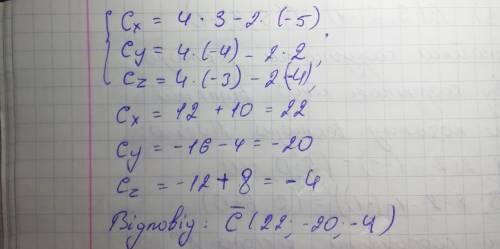 Cx = 4 · 3 - 2 · (-5)
Cy = 4 · (-4) - 2 · 2,
Cz = 4 · (-3) - 2 (-4),
Cx = 12 + 10 = 22
Cy = -16 - 4 = -20
Cz = -12 + 8 = -4
Відповідь: C̅ (22; -20; -4)